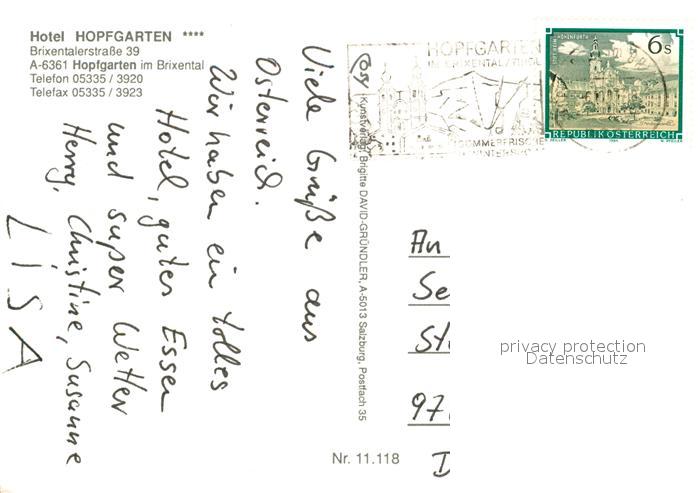 Hotel HOPFGARTEN ****
Brixentalerstraße 39
A-6361 Hopfgarten im Brixental
Telefon 05335 / 3920
Telefax 05335 / 3923
Viele Grüße aus
Österreich.
Wir haben ein tolles
Hotel, gutes Essen
und super Wetter
Henry, Christine, Susanne
LISA
Kunstverlag Brigitte DAVID-GRÜNDLER, A-5013 Salzburg, Postfach 35
Nr. 11.118
HOPFGARTEN
IM BRIXENTAL/TIROL
SOMMERFRISCHE
WINTERSPO
6s
REPUBLIK ÖSTERREICH
An
Se
St
97
D
privacy protection
Datenschutz